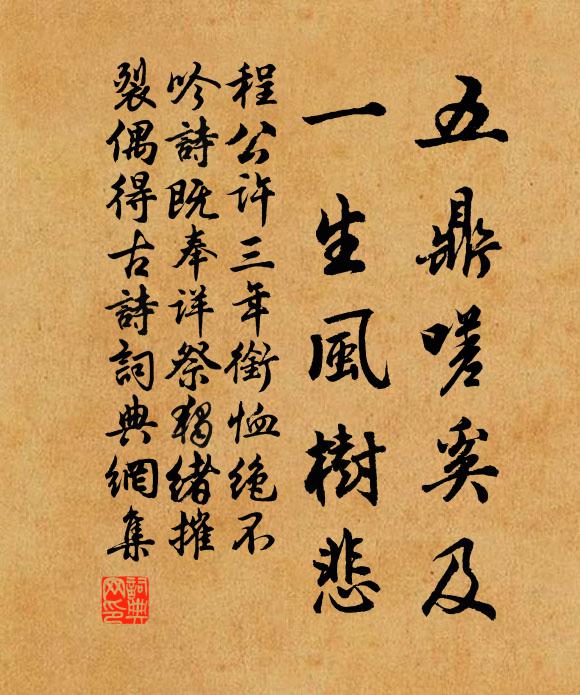 五鼎嗟奚及
一生風樹悲
程公許三年銜恤絶不
吟詩既奉祥祭獨緒摧
裂偶得古詩詞典網集
詞典網印